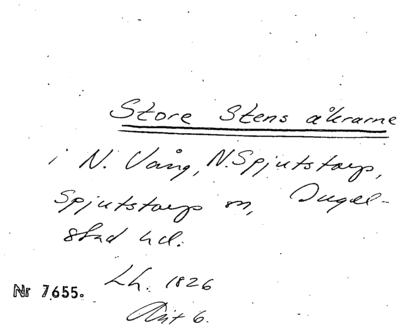 Store Stens åkrarne
i N. Vång, N. Spjutstorp,
Spjutstorp sn, Ingel-
stad hd.
Lh. 1826
Nr 7655.
Akt 6.